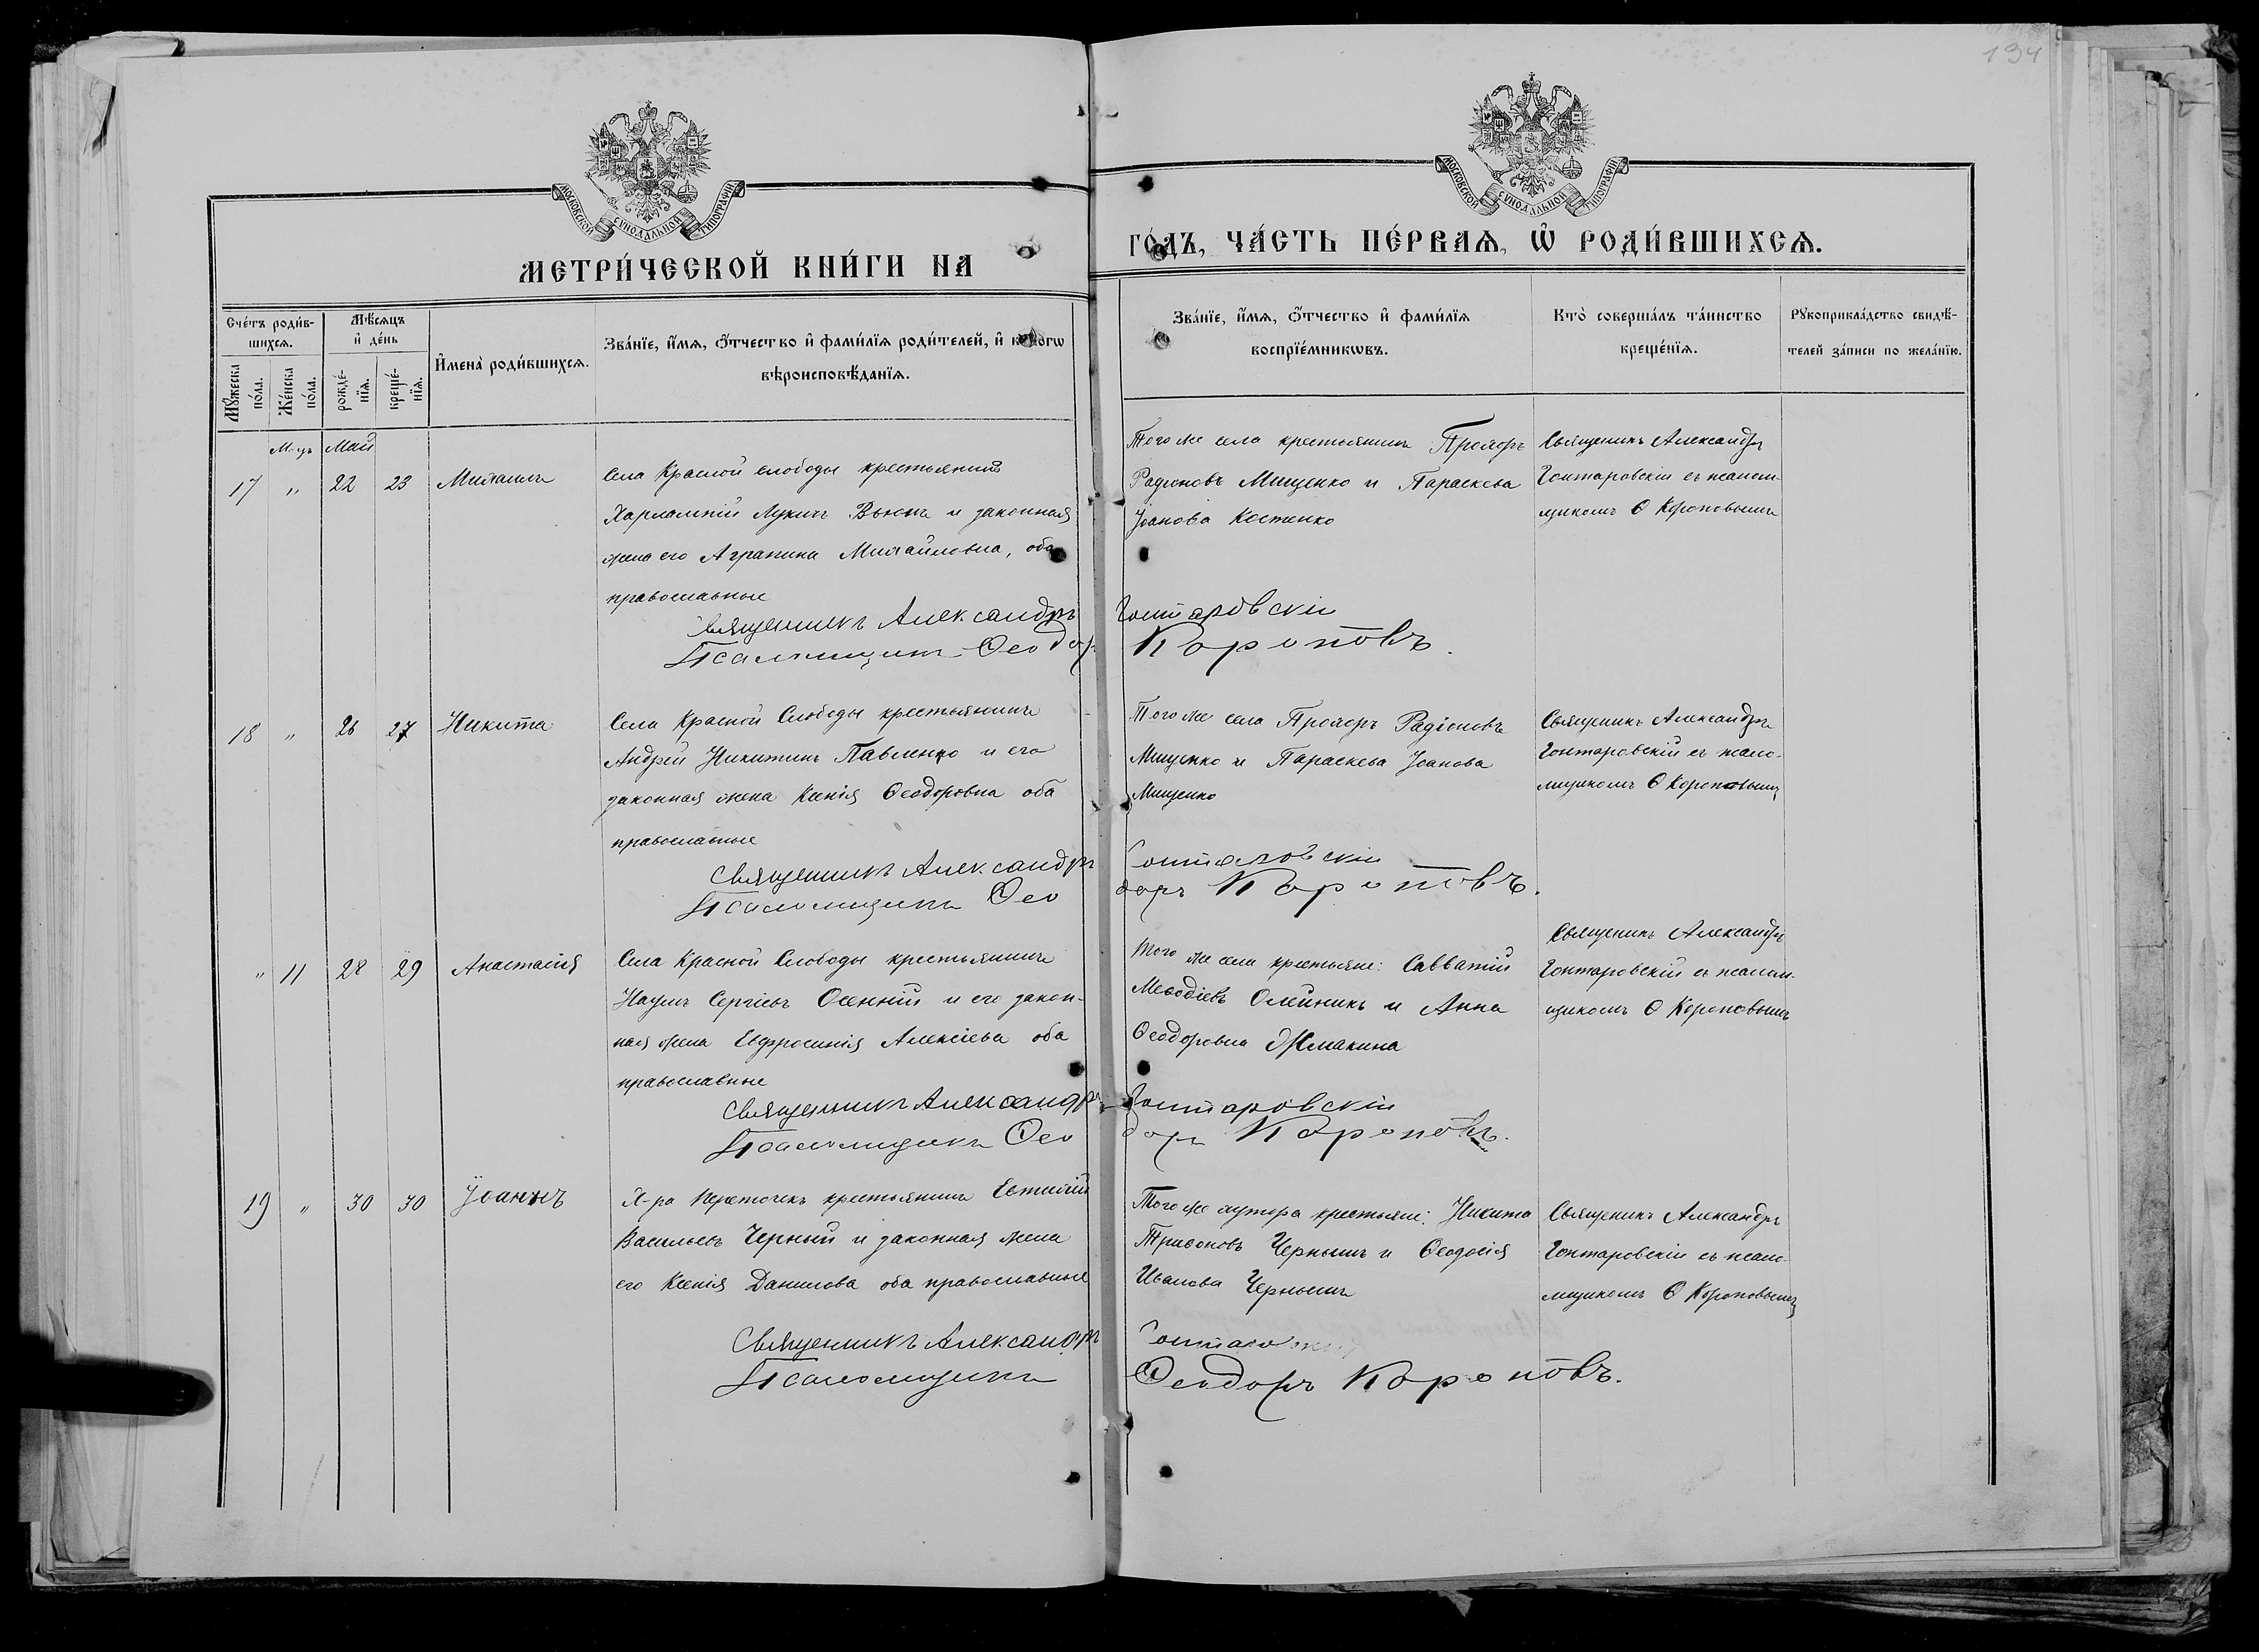 134
МОСКОВСКОЙ СУНОДАЛЬНОЙ ТИПОГРАФІИ
МОСКОВСКОЙ СУНОДАЛЬНОЙ ТИПОГРАФІИ
МЕТРИ́ЧЕСКОЙ КНИ́ГИ НА
ГО́ДЪ, ЧА́СТЬ ПЕ́РВАѦ, Ѡ҆ РОДИ́ВШИХСѦ.
Сче́тъ роди́в-
шихсѧ.
Мѣ́сѧцъ
и҆ де́нь
И҆мена̀ роди́вшихсѧ.
Зва́нїе, и҆́мѧ, ѻ҆́тчество и҆ фами́лїѧ роди́телей, и҆ ко́гѡ
вѣроисповѣ́данїѧ.
Мꙋ́жеска
по́ла.
Же́нска
по́ла.
рожде́-
нїѧ.
креще́-
нїѧ.
Зва́нїе, и҆́мѧ, ѻ҆́тчество и҆ фами́лїѧ
воспрїе́мникѡвъ.
Кто̀ соверша́лъ та́инство
креще́нїѧ.
Рꙋкоприкла́дство свидѣ́-
телей за́писи по жела́нїю.
М-цъ Май
17 " 22 23 Михаилъ
Села Красной слободы крестьянинъ
Харлампій Лукичъ Вьюнъ и законная
жена его Агрипина Михайловна, оба
православные
Того же села крестьянинъ Прохоръ
Радіоновъ Мищенко и Параскева
Іоанова Костенко
Священикъ Александръ
Гонтаровскій съ псалом-
щикомъ Ѳ Короповымъ
Священникъ Александръ Гонтаровскій
Псаломщикъ Ѳеодоръ Короповъ.
18 " 26 27 Никита
Села Красной Слободы крестьянинъ
Андрей Никитинъ Павленко и его
законная жена Ксенія Ѳеодоровна оба
православные
Того же села Прохоръ Радіоновъ
Мищенко и Параскева Іоанова
Мищенко
Священикъ Александръ
Гонтаровскій съ псало-
мщикомъ Ѳ Короповымъ
Священникъ Александръ Гонтаровскій
Псаломщикъ Ѳеодоръ Короповъ.
" 11 28 29 Анастасія
Села Красной Слободы крестьянинъ
Наумъ Сергіевъ Осенній и его закон-
ная жена Евфросинія Алексіева оба
православные
Того же села крестьяне: Савватій
Меѳодіевъ Олейникъ и Анна
Ѳеодоровна Жмакина
Священикъ Александръ
Гонтаровскій съ псалом-
щикомъ Ѳ Короповымъ
Священникъ Александръ Гонтаровскій
Псаломщикъ Ѳеодоръ Короповъ.
19 " 30 30 Іоаннъ
Х-ра крестьянинъ Евтихій
Васильевъ Черныш и законная жена
его Ксенія Данилова оба православные
Того же хутора крестьяне: Никита
Трифоновъ Чернышъ и Ѳеодосія
Иванова Чернышъ
Священикъ Александръ
Гонтаровскій съ псало-
мщикомъ Ѳ Короповымъ
Священникъ Александръ
Псаломщикъ Ѳеодоръ Короповъ.